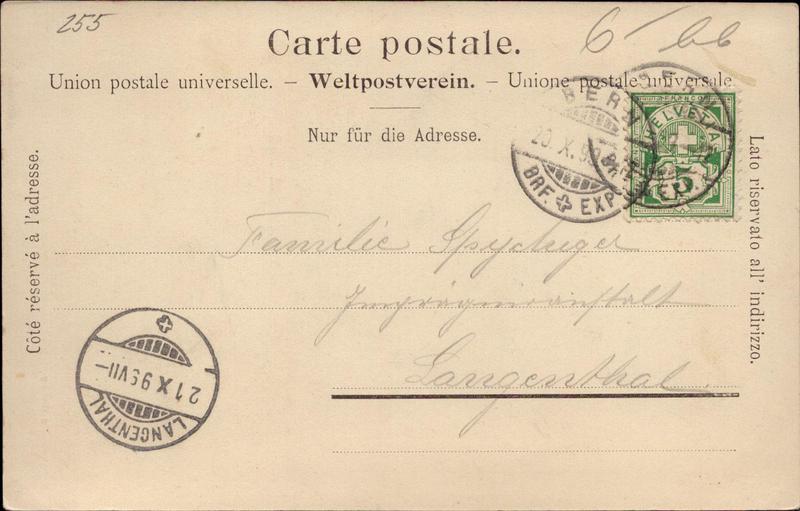 255
6 66
Carte postale.
Union postale universelle. – Weltpostverein. – Unione postale universale
Nur für die Adresse.
Côté réservé à l'adresse.
Lato riservato all' indirizzo.
BERN
20. X. 9
BRF. EXP.
HELVETIA
5
Familie Spychiger
Imprägnieranstalt
Langenthal.
21 X 9 VII–
LANGENTHAL